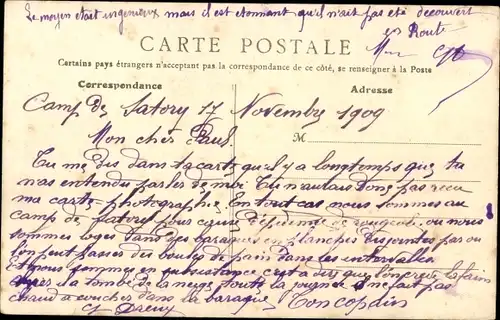 Le moyen était ingénieux mais il est étonnant qu'il n'ait pas été découvert
en Route
CARTE POSTALE
Certains pays étrangers n'acceptant pas la correspondance de ce côté, se renseigner à la Poste
Correspondance
Adresse
Camp de Satory 17 Novembre 1909
Mon cher Paul
M
Tu me dis dans ta carte qu'il y a longtemps que tu
n'as entendu parler de moi Tu n'aurais donc pas reçu
ma carte photographie En tout cas nous sommes au
camp de Satory pour cause d'épidémie de rougeole ou nous
sommes logés dans des baraques en planches disjointes par ou
l'on peut passer des boules de pain dans les intervalles
nous sommes en subsistance c'est a dire que l'on crève la faim
il a tombé de la neige toute la journée il ne fait pas
chaud a coucher dans la baraque Ton copain
Dreux